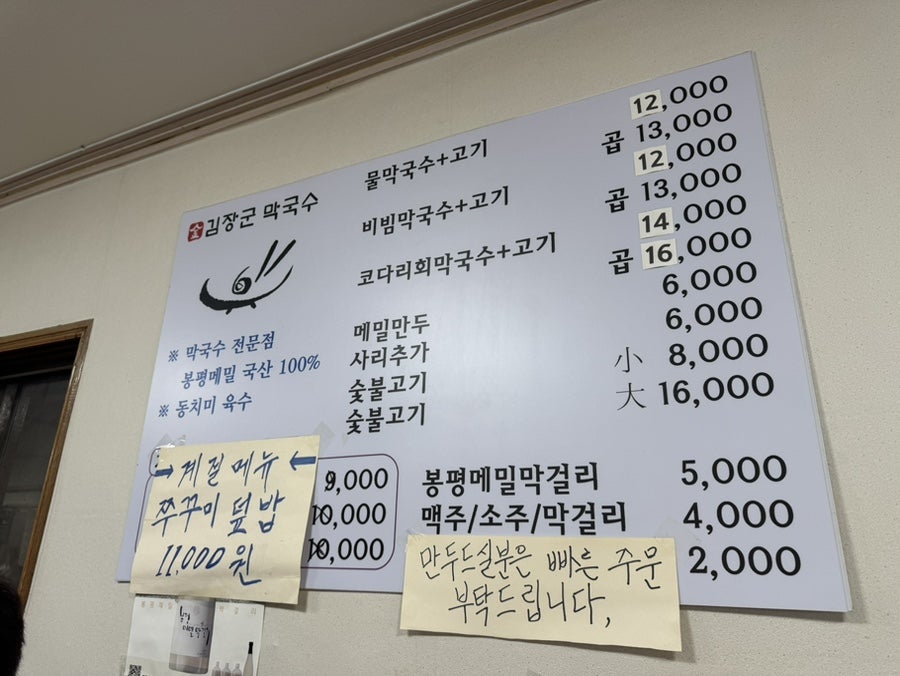 金 김장군 막국수
※ 막국수 전문점
봉평메밀 국산 100%
※ 동치미 육수
물막국수+고기 12,000
곱 13,000
비빔막국수+고기 12,000
곱 13,000
코다리회막국수+고기 14,000
곱 16,000
메밀만두 6,000
사리추가 6,000
숯불고기 小 8,000
숯불고기 大 16,000
→ 계절메뉴 ←
쭈꾸미 덮밥
11,000원
9,000
10,000
10,000
봉평메밀막걸리 5,000
맥주/소주/막걸리 4,000
2,000
만두드실분은 빠른 주문
부탁드립니다,
봉평메밀막걸리